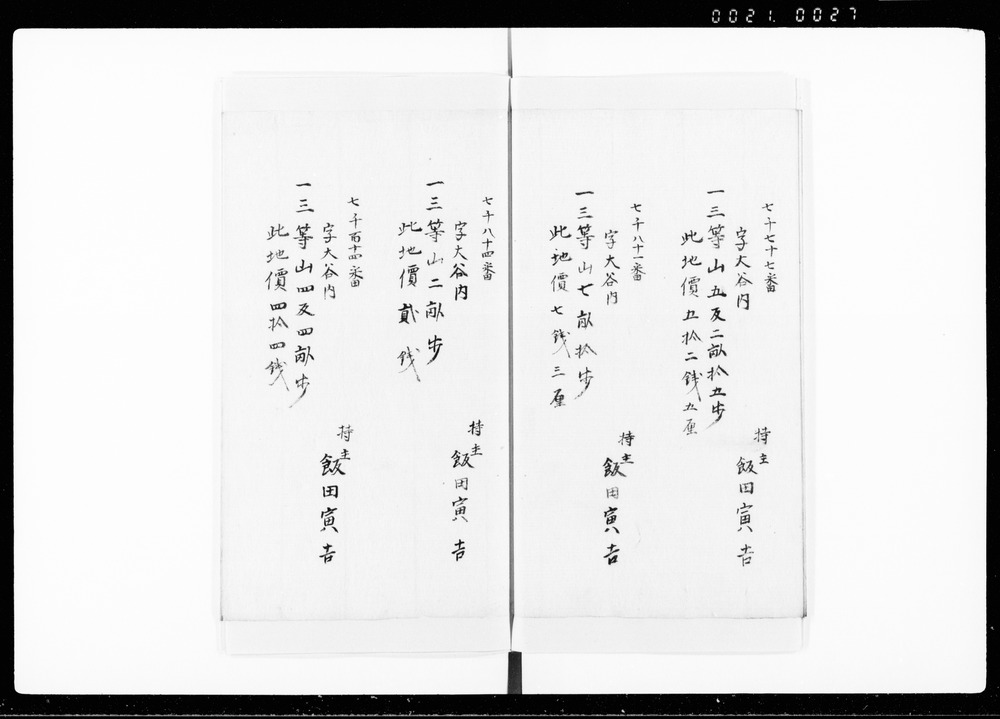 0021. 0027
七千七十七番
字大谷内
一三等山五反二畝拾五歩
此地價五拾二錢五厘
持主
飯田寅吉
七千八十一番
字大谷内
一三等山七畝拾歩
此地價七錢三厘
持主
飯田寅吉
七千八十四番
字大谷内
一三等山二畝歩
此地價貳錢
持主
飯田寅吉
七千百十四番
字大谷内
一三等山四反四畝歩
此地價四拾四錢
持主
飯田寅吉